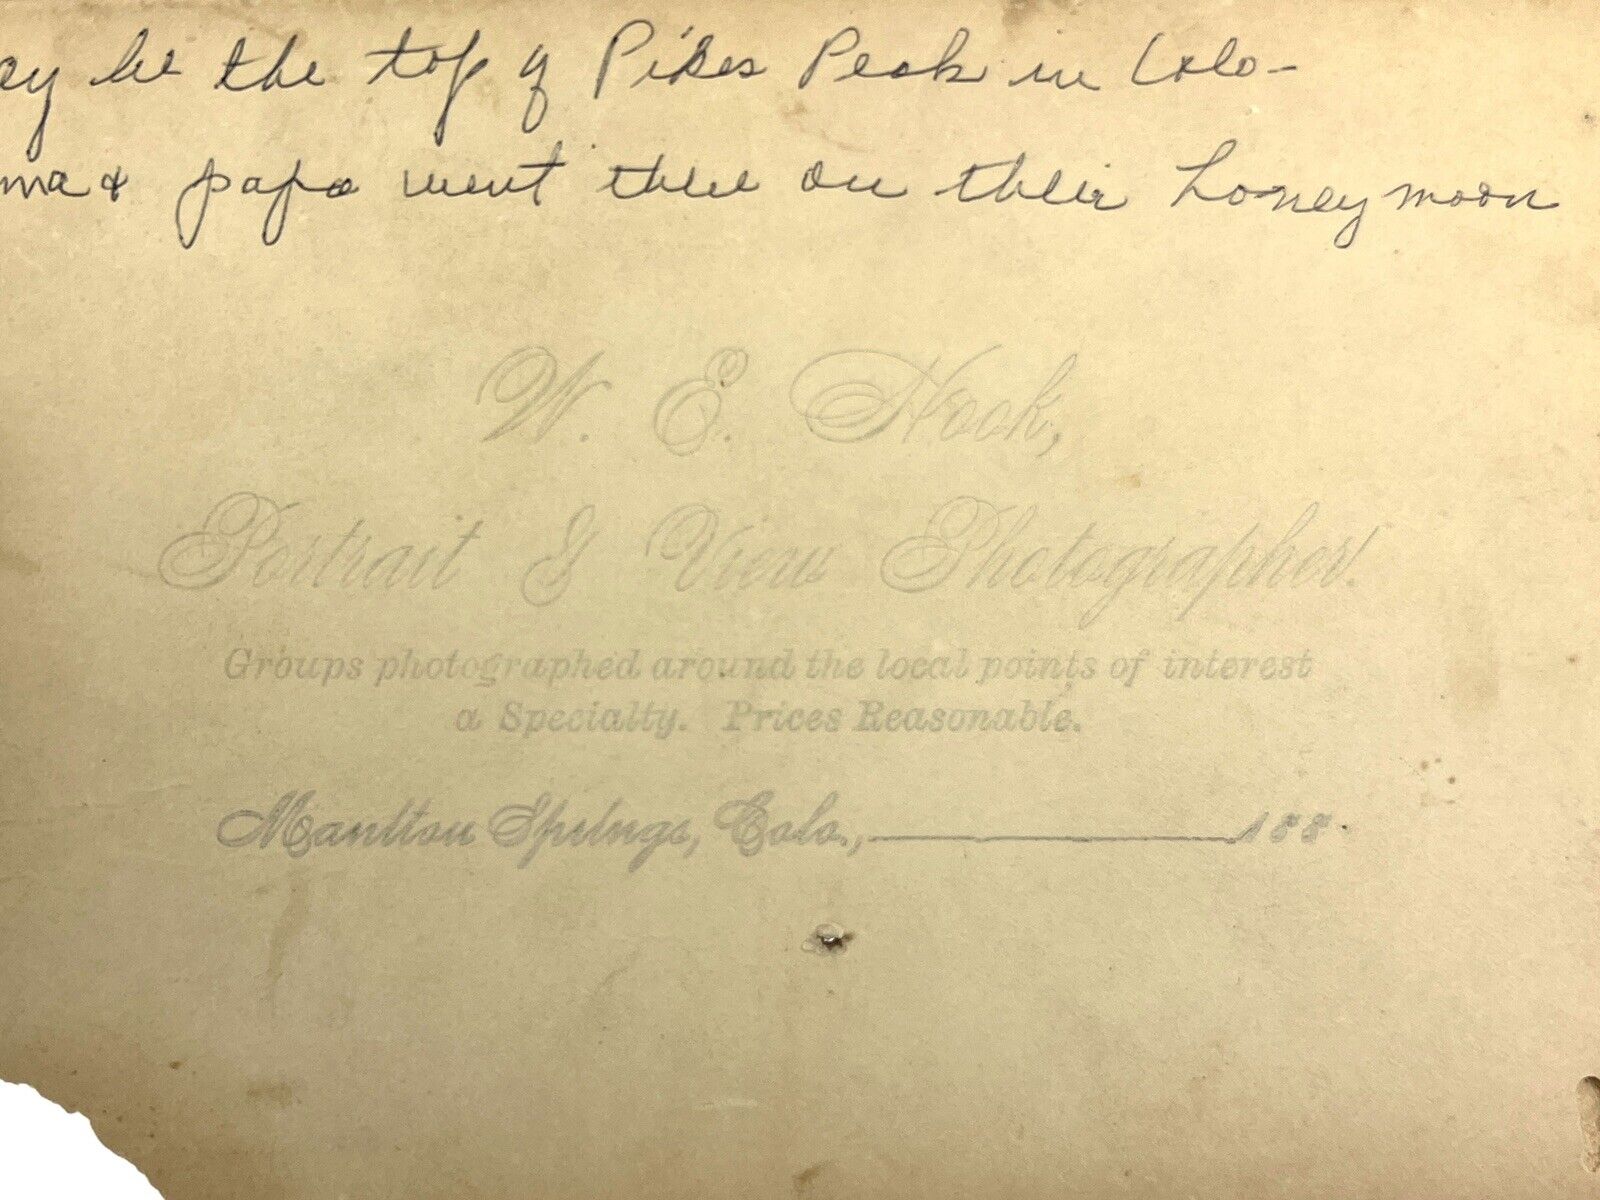 ay be the top of Pikes Peak in Colo-
ma & papa went there on their honeymoon
W. E. Hook,
Portrait & View Photographer.
Groups photographed around the local points of interest
a Specialty. Prices Reasonable.
Manitou Springs, Colo., 188.